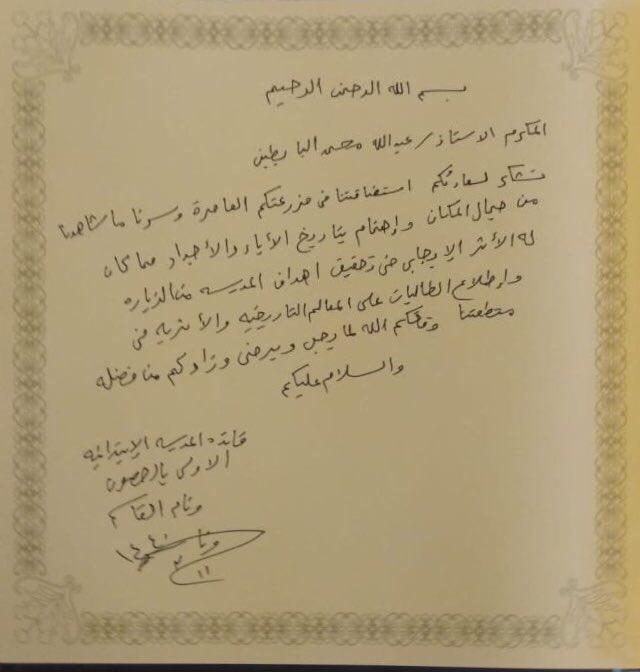 بسم الله الرحمن الرحيم
المكرم الاستاذ / عبدالله محمد البابطين
نشكر لسعادتكم استضافتنا في مزرعتكم العامرة وسرنا ما شاهدنا
من جمال المكان وإهتمام بتاريخ الأباء والأجداد مما كان
له الأثر الإيجابي في تحقيق اهداف المدرسه من الزياره
وإطلاع الطالبات على المعالم التاريخيه والأثريه في
منطقتنا وفقكم الله لما يحب ويرضى وزادكم من فضله
والسلام عليكم
قائدة المدرسه الإبتدائيه
الاولى بالحصون
وئام القا
١٤٤٠
٢
١١